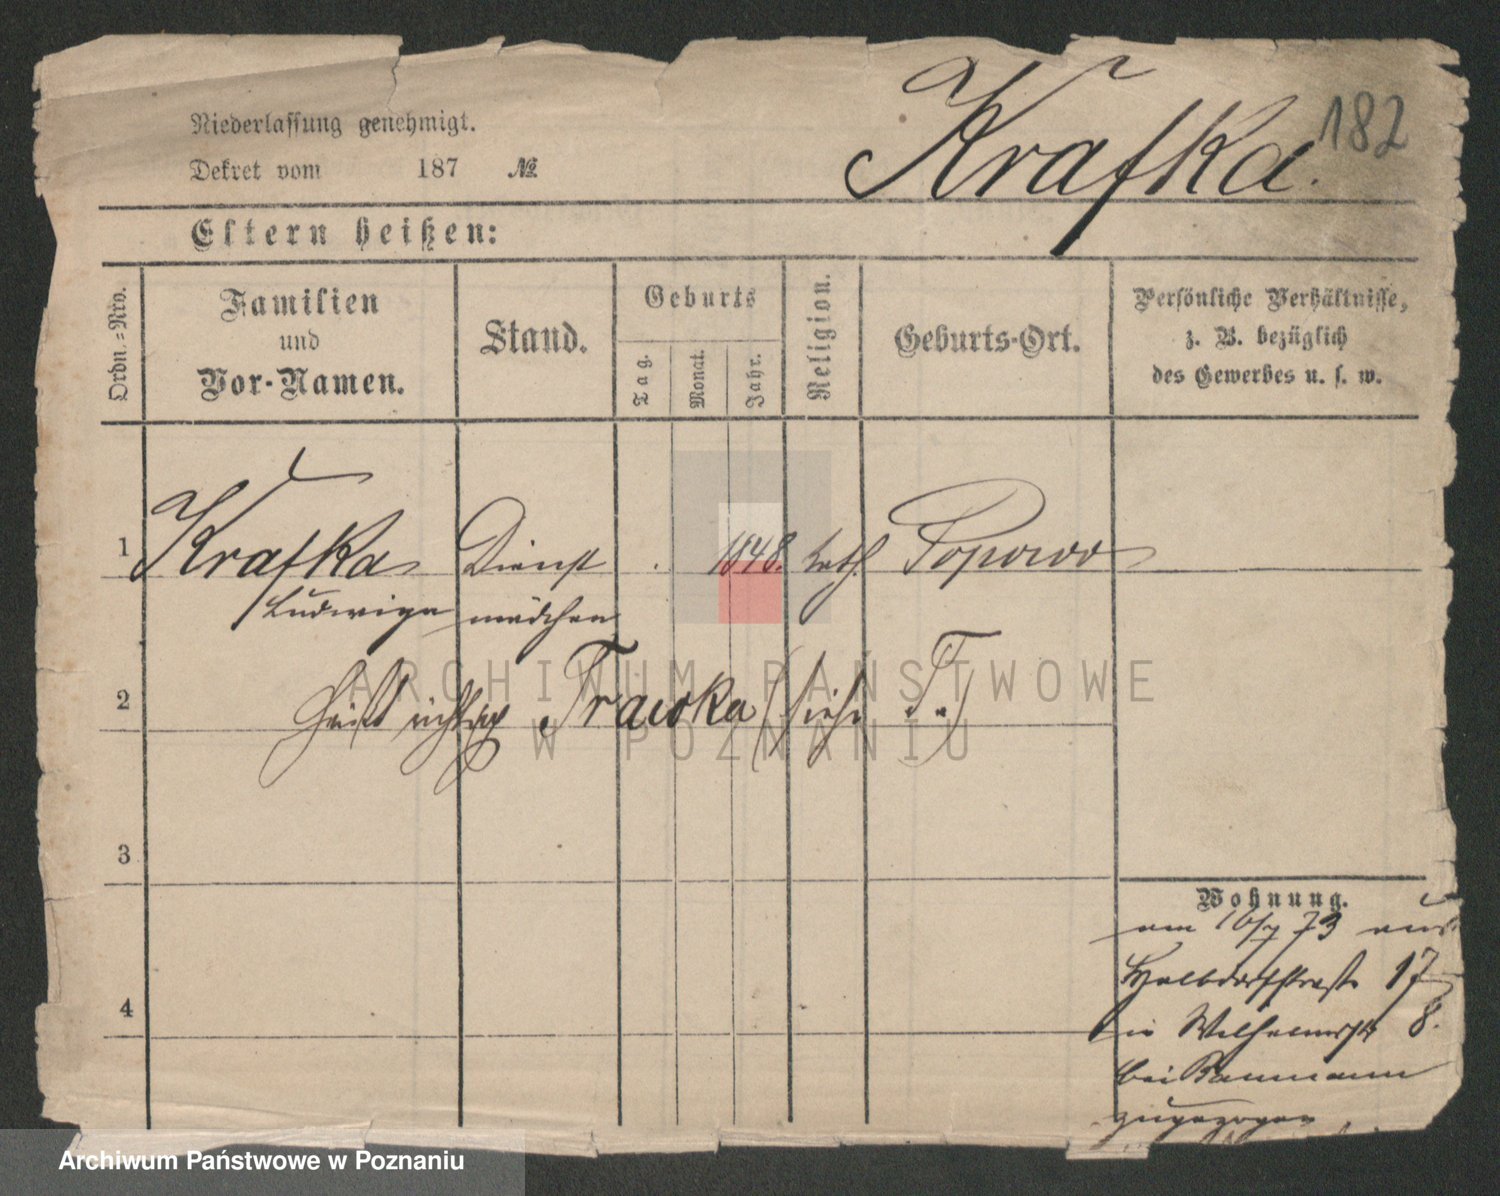 182
Krafka.
Niederlassung genehmigt.
Dekret vom 187 №
Eltern heißen:
Ordn.-Nro.
Familien
und
Vor-Namen.
Stand.
Geburts
Tag.
Monat.
Jahr.
Religion.
Geburts-Ort.
Persönliche Verhältnisse,
z. B. bezüglich
des Gewerbes u. s. w.
1 Krafka Dienst 1848. kath. Popowo
Ludwiga mädchen
2
heißt richtig Trawka (siehe T.)
3
4
Wohnung.
am 16/7 73 aus
Halbdorfstraße 17
in Wilhelmstr 8.
bei Baumann
zugezogen
ARCHIWUM PAŃSTWOWE
W POZNANIU
Archiwum Państwowe w Poznaniu